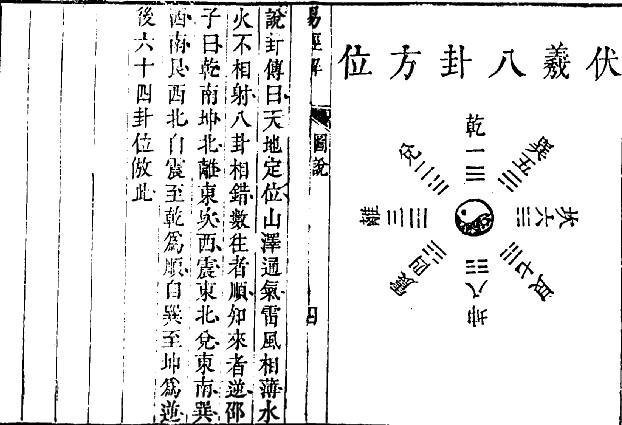 伏羲八卦方位
乾一
兌二
離三
震四
巽五
坎六
艮七
坤八
易經解
圖說
四
說卦傳曰天地定位山澤通氣雷風相薄水
火不相射八卦相錯數往者順知來者逆邵
子曰乾南坤北離東坎西震東北兌東南巽
西南艮西北自震至乾爲順自巽至坤爲逆
後六十四卦位倣此